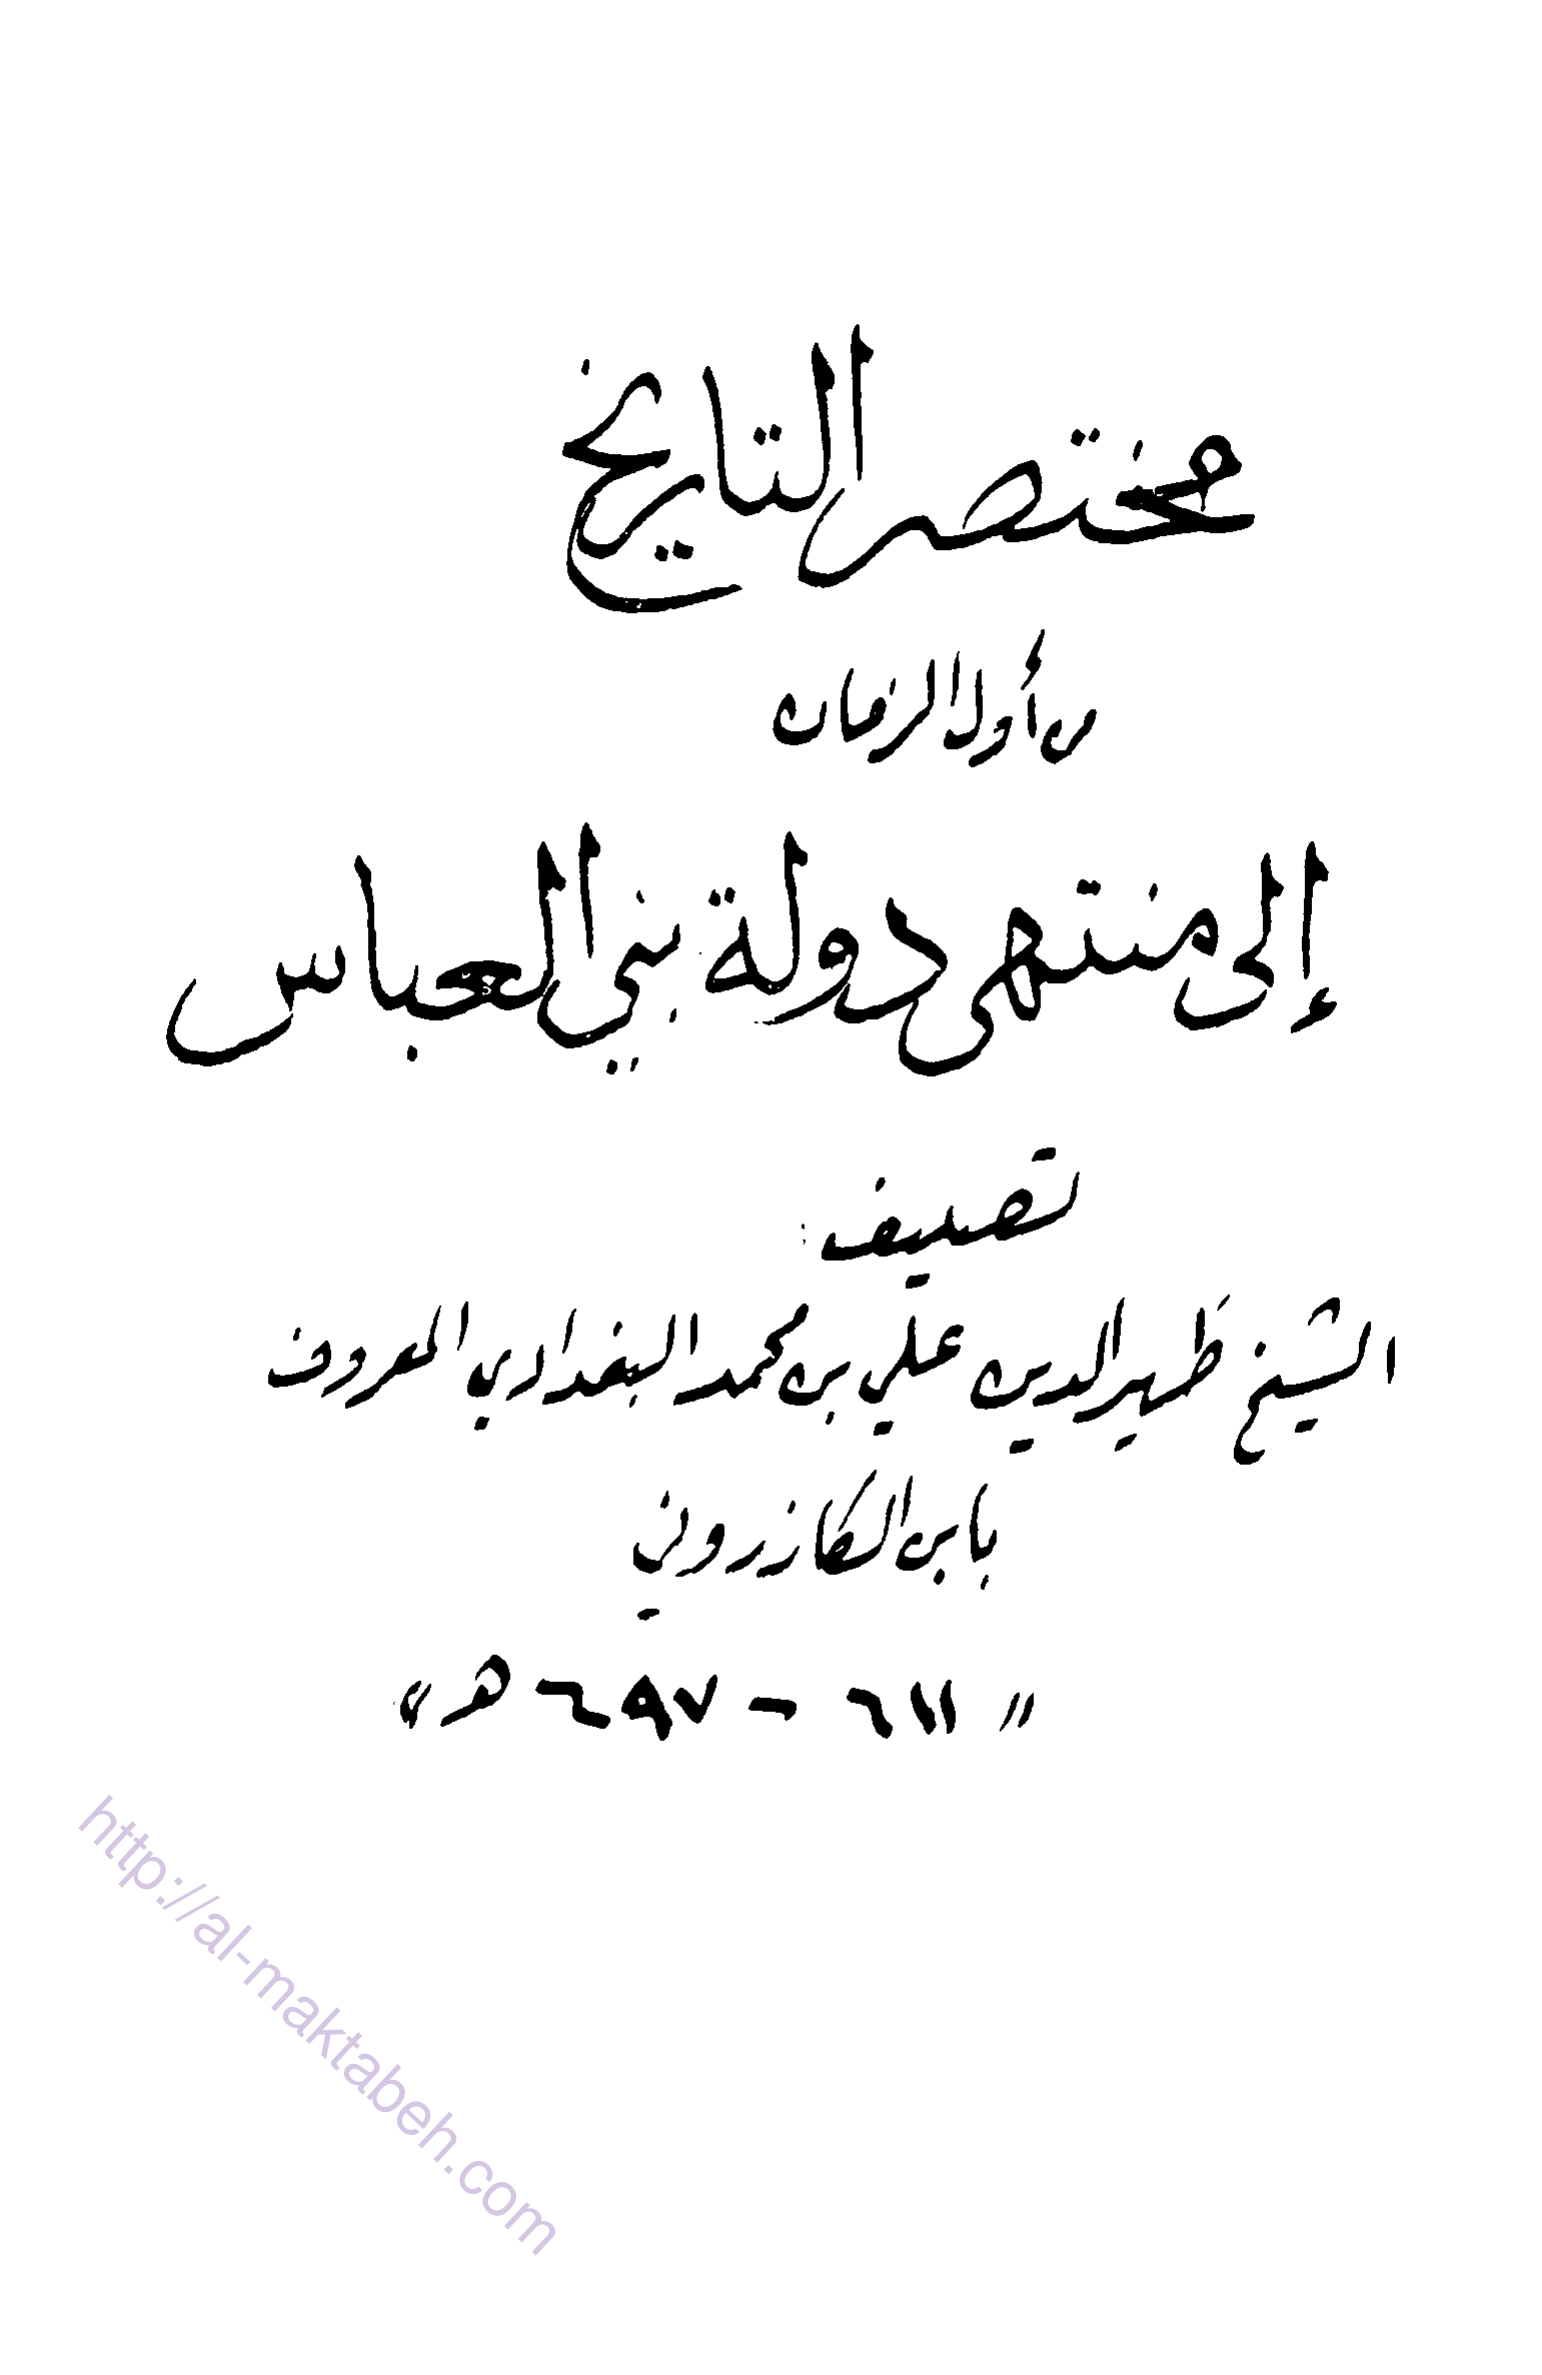 مختصر التاريخ
من أول الزمان
إلى منتهى دولة بني العباس
تصنيف
الشيخ ظهير الدين علي بن محمد البغدادي المعروف
بابن الكازروني
« ٦١١ - ٦٩٧ هـ »
http://al-maktabeh.com